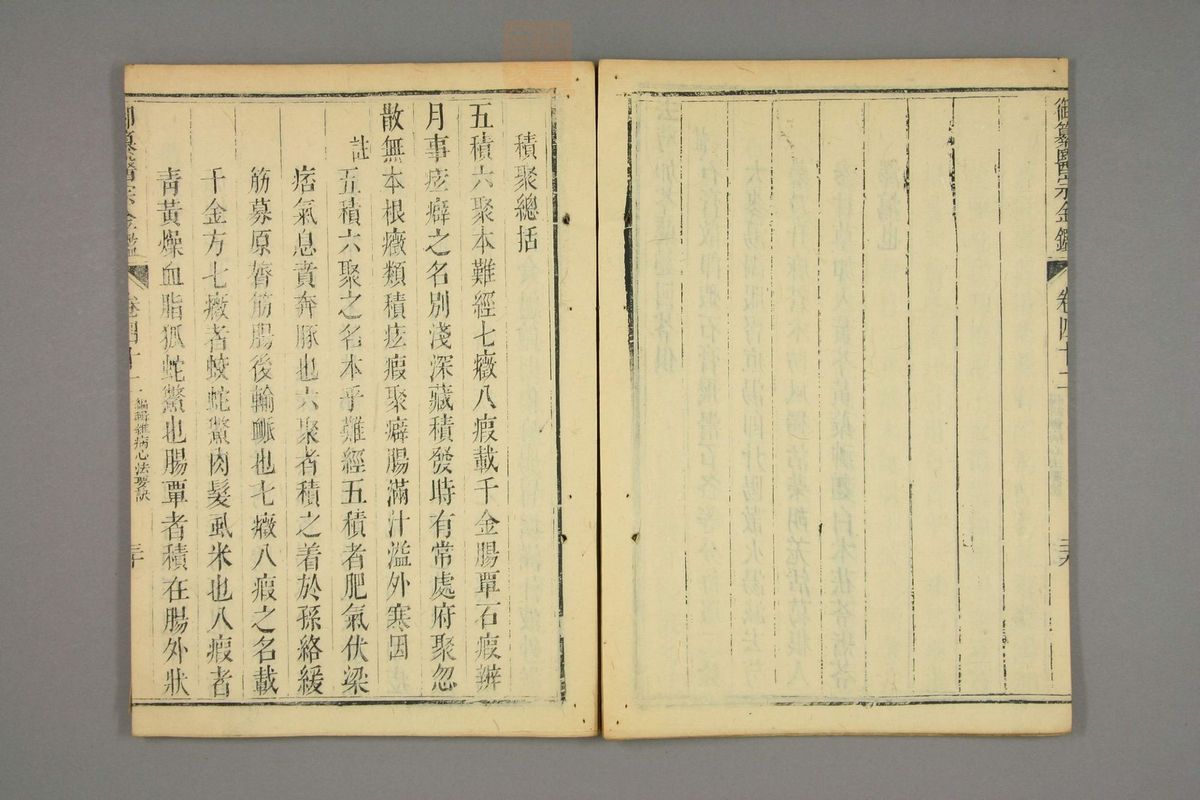 御纂醫宗金鑑
卷四十二
三九
積聚總括
五積六聚本難經七癥八瘕載千金腸覃石瘕辨
月事痃癖之名別淺深藏積發時有常處府聚忽
散無本根癥類積痃瘕聚癖腸滿汁溢外寒因
註
五積六聚之名本乎難經五積者肥氣伏梁
痞氣息賁奔豚也六聚者積之着於孫絡緩
筋募原膂筋腸後輸脈也七癥八瘕之名載
千金方七癥者蛟蛇鱉肉髮虱米也八瘕者
靑黃燥血脂狐蛇鱉也腸覃者積在腸外狀
御纂醫宗金鑑
卷四十二
編輯雜病心法要訣
三十